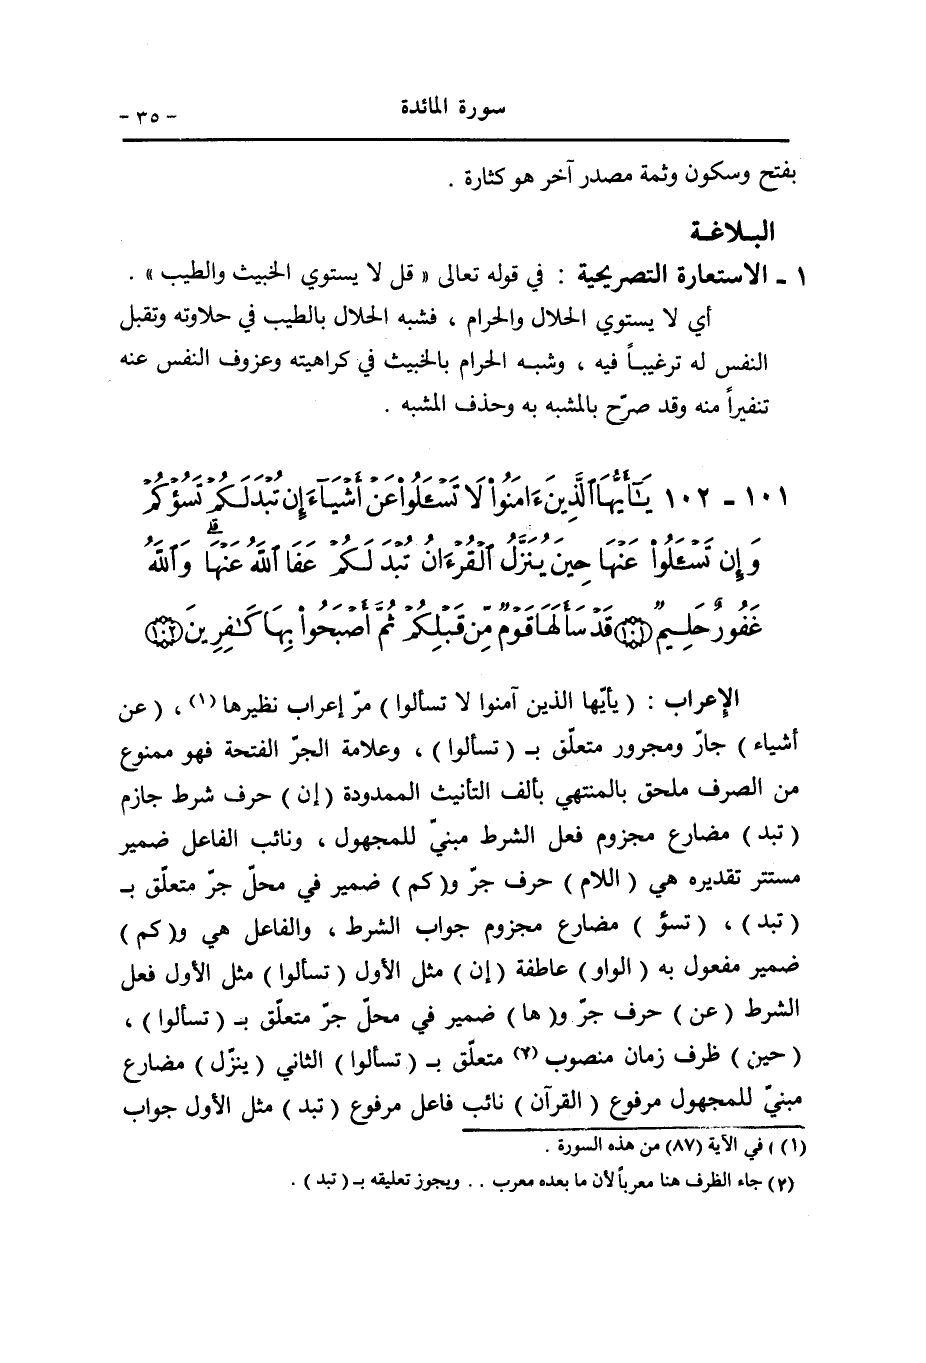 سورة المائدة
- ٣٥ -
بفتح وسكون وثمة مصدر آخر هو كثارة .
البـلاغـة
١ - الاستعارة التصريحية : في قوله تعالى « قل لا يستوي الخبيث والطيب » .
أي لا يستوي الحلال والحرام ، فشبه الحلال بالطيب في حلاوته وتقبل
النفس له ترغيباً فيه ، وشبه الحرام بالخبيث في كراهيته وعزوف النفس عنه
تنفيراً منه وقد صرّح بالمشبه به وحذف المشبه .
١٠١ - ١٠٢ يَـٰٓأَيُّهَا ٱلَّذِينَ ءَامَنُوا۟ لَا تَسْـَٔلُوا۟ عَنْ أَشْيَآءَ إِن تُبْدَ لَكُمْ تَسُؤْكُمْ
وَإِن تَسْـَٔلُوا۟ عَنْهَا حِينَ يُنَزَّلُ ٱلْقُرْءَانُ تُبْدَ لَكُمْ عَفَا ٱللَّهُ عَنْهَا ۗ وَٱللَّهُ
غَفُورٌ حَلِيمٌ ﴿١٠١﴾ قَدْ سَأَلَهَا قَوْمٌ مِّن قَبْلِكُمْ ثُمَّ أَصْبَحُوا۟ بِهَا كَـٰفِرِينَ ﴿١٠٢﴾
الإعراب : ( يأيّها الذين آمنوا لا تسألوا ) مرّ إعراب نظيرها (١) ، ( عن
أشياء ) جارّ ومجرور متعلّق بـ ( تسألوا ) ، وعلامة الجرّ الفتحة فهو ممنوع
من الصرف ملحق بالمنتهي بألف التأنيث الممدودة ( إن ) حرف شرط جازم
( تبد ) مضارع مجزوم فعل الشرط مبنيّ للمجهول ، ونائب الفاعل ضمير
مستتر تقديره هي ( اللام ) حرف جرّ و( كم ) ضمير في محلّ جرّ متعلّق بـ
( تبد ) ، ( تسؤ ) مضارع مجزوم جواب الشرط ، والفاعل هي و( كم )
ضمير مفعول به ( الواو ) عاطفة ( إن ) مثل الأول ( تسألوا ) مثل الأول فعل
الشرط ( عن ) حرف جرّ و( ها ) ضمير في محلّ جرّ متعلّق بـ ( تسألوا ) ،
( حين ) ظرف زمان منصوب (٢) متعلّق بـ ( تسألوا ) الثاني ( ينزّل ) مضارع
مبنيّ للمجهول مرفوع ( القرآن ) نائب فاعل مرفوع ( تبد ) مثل الأول جواب
(١) ) في الآية (٨٧) من هذه السورة .
(٢) جاء الظرف هنا معرباً لأن ما بعده معرب . . ويجوز تعليقه بـ ( تبد ) .